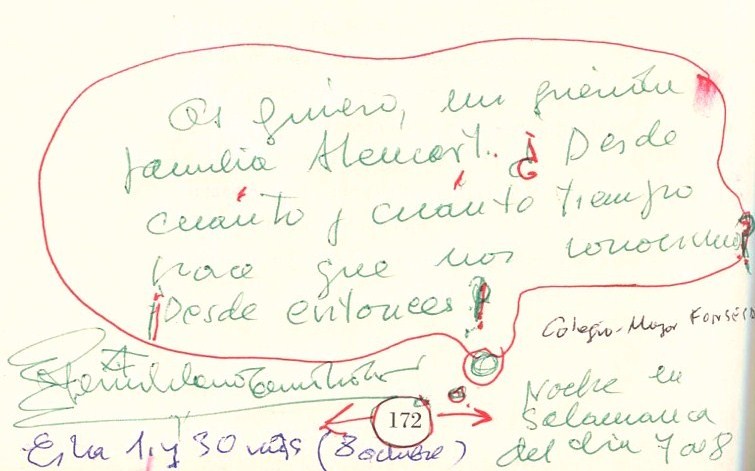 Os quiero, mi querida
familia Alencart.. ¿ Desde
cuánto y cuánto tiempo
hace que nos conocimos?
¡Desde entonces!
Colegio-Mayor FONSECA
172
Noche en
Salamanca
del día 7 a 8
Es la 1. y 30 (8 octubre)